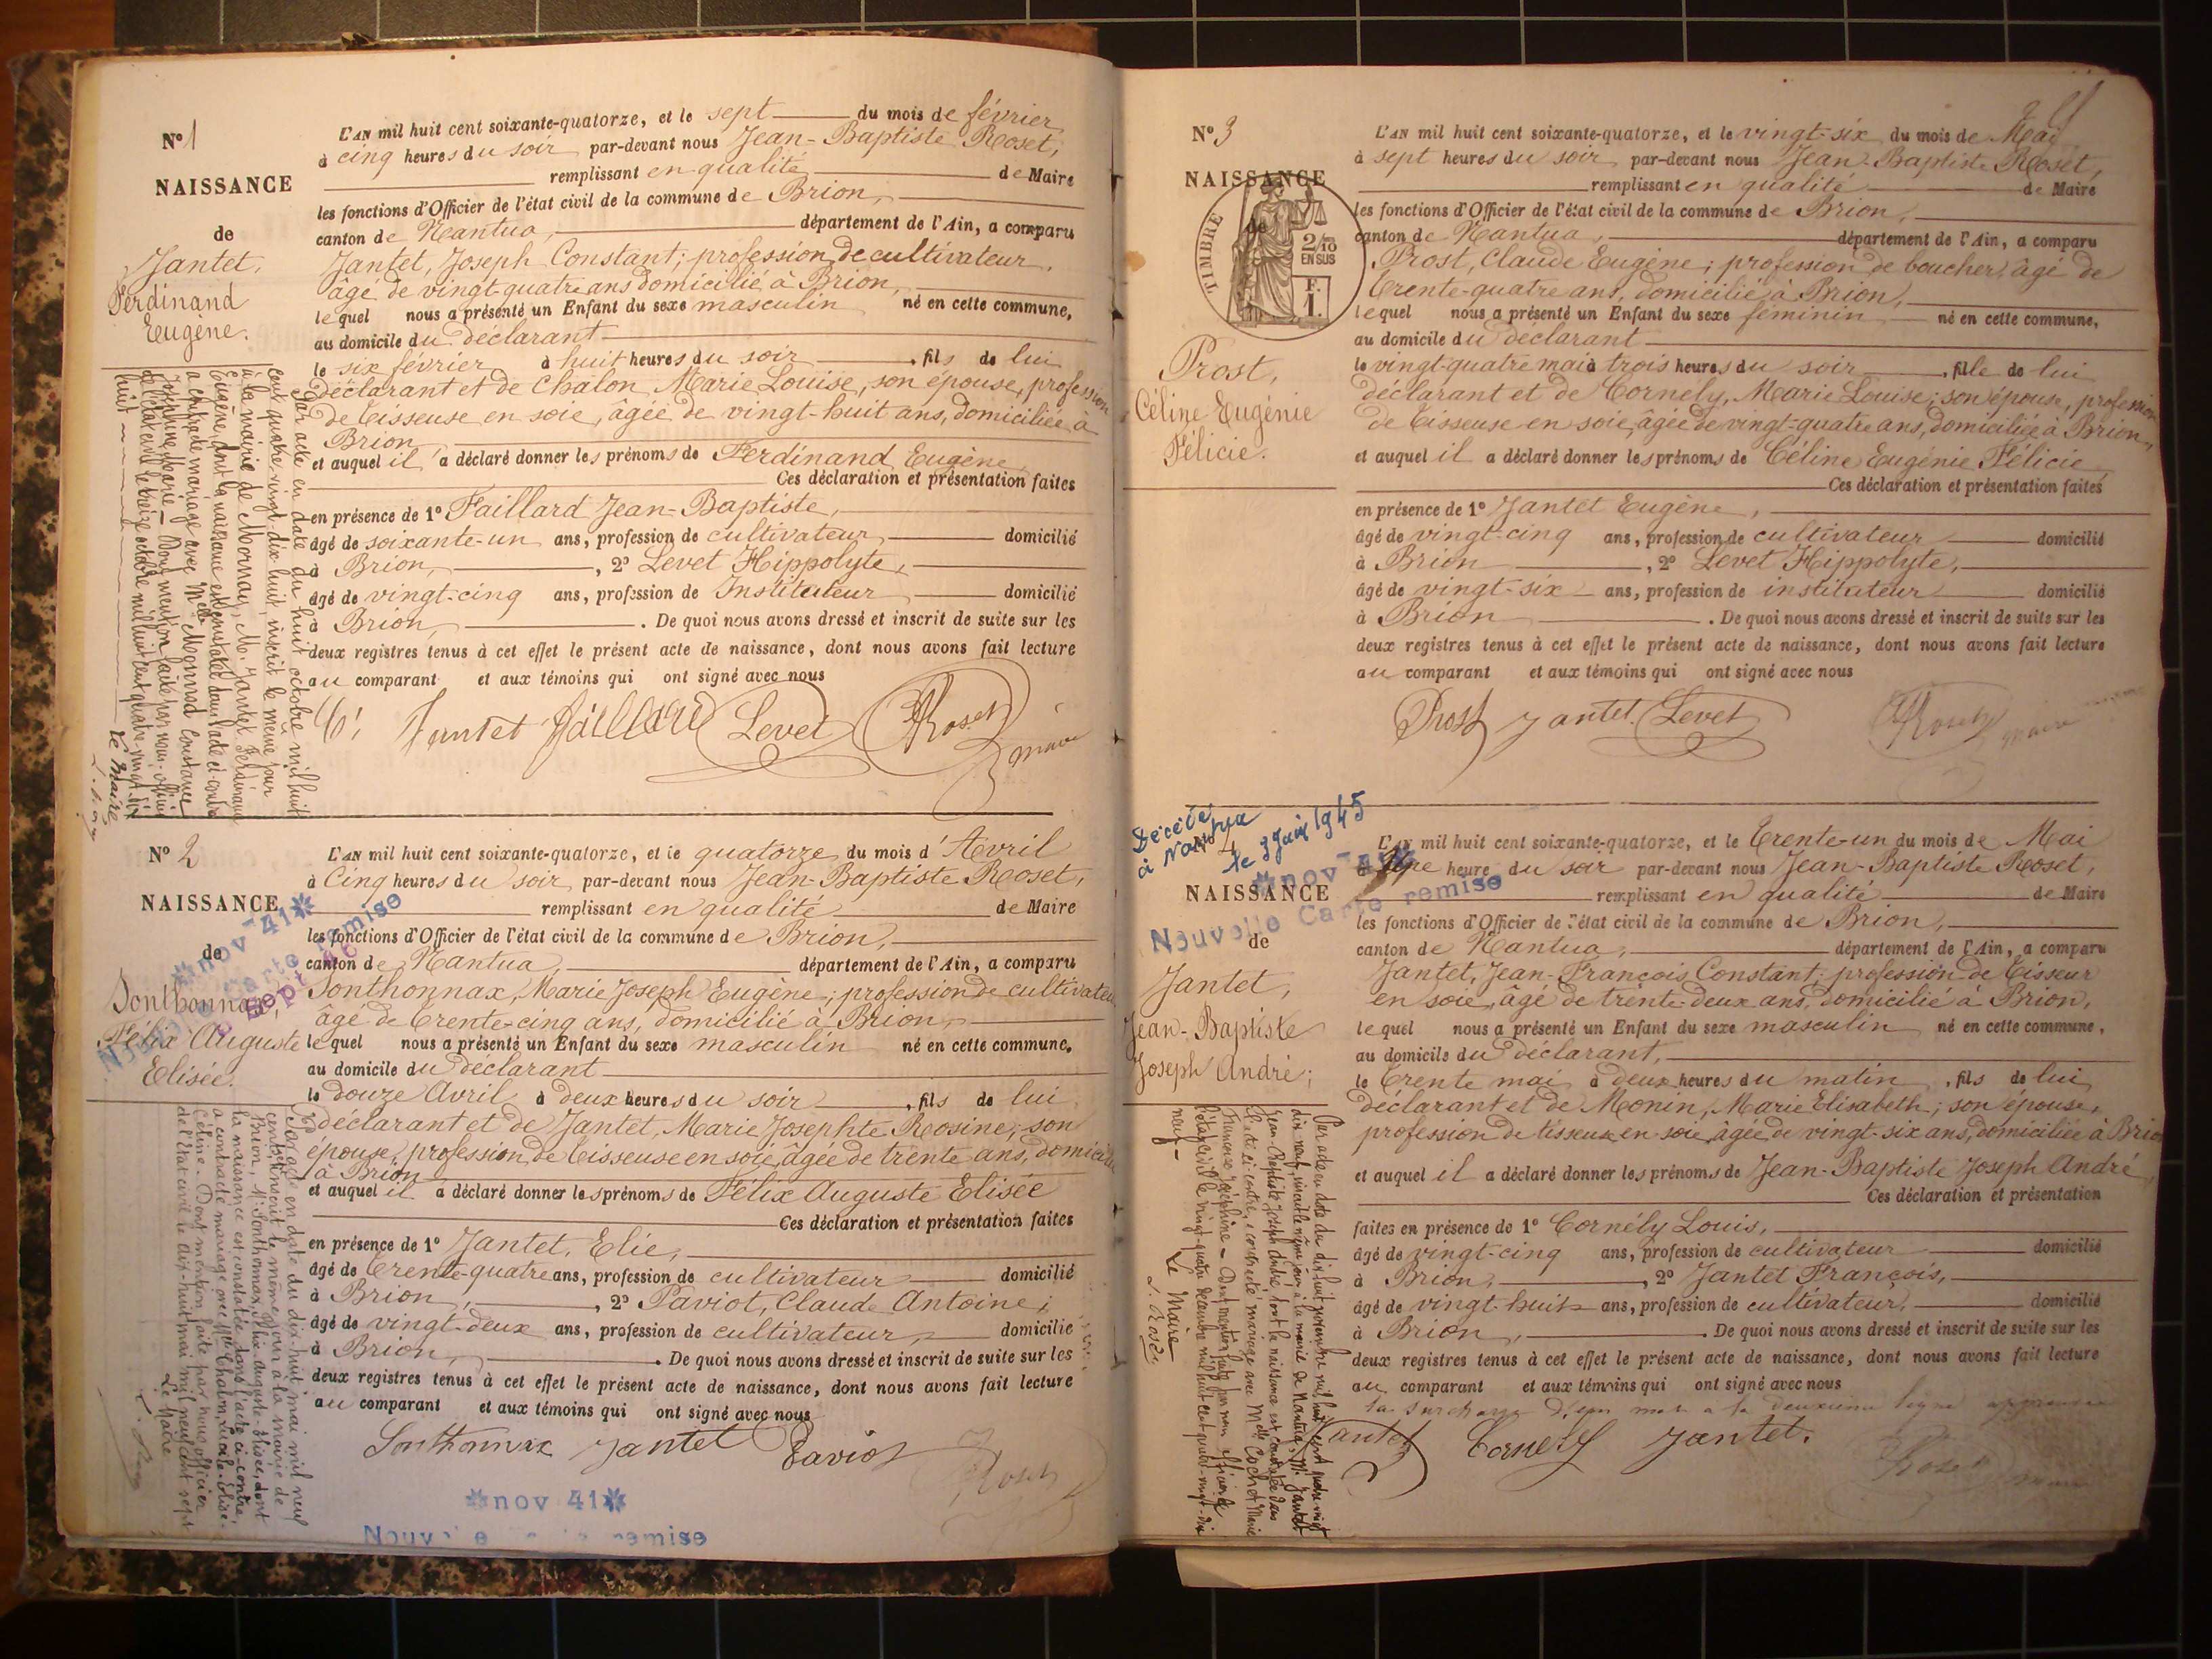 Nº 1
NAISSANCE
de
Jantet,
Ferdinand
Eugène.
L'AN mil huit cent soixante-quatorze, et le sept du mois de février
à cinq heures du soir par-devant nous Jean-Baptiste Roset,
remplissant en qualité de Maire
les fonctions d'Officier de l'état civil de la commune de Brion,
canton de Nantua, département de l'Ain, a comparu
Jantet, Joseph Constant; profession de cultivateur,
âgé de vingt-quatre ans domicilié à Brion,
lequel nous a présenté un Enfant du sexe masculin né en cette commune,
au domicile du déclarant
le six février à huit heures du soir, fils de lui
déclarant et de Chalon, Marie Louise, son épouse, profession
de tisseuse en soie, âgée de vingt-huit ans, domiciliée à
Brion
et auquel il a déclaré donner les prénoms de Ferdinand Eugène
Ces déclaration et présentation faites
en présence de 1º Faillard Jean-Baptiste,
âgé de soixante-un ans, profession de cultivateur domicilié
à Brion, , 2º Levet Hippolyte,
âgé de vingt-cinq ans, profession de Instituteur domicilié
à Brion, . De quoi nous avons dressé et inscrit de suite sur les
deux registres tenus à cet effet le présent acte de naissance, dont nous avons fait lecture
au comparant et aux témoins qui ont signé avec nous
Jantet Faillard Levet Roset
maire
Par acte en date du huit octobre mil huit
cent quatre-vingt-dix-huit, inscrit le même jour
à la mairie de Mornay, M. Jantet Ferdinand
Eugène, dont la naissance est constatée dans l'acte ci-contre
a contracté mariage avec Mlle Monnad Constance
Joséphine Marie - Dont mention faite par nous officier
de l'état civil le treize octobre mil huit cent quatre-vingt-dix
huit
Le Maire
Nº 2
NAISSANCE
de
Sonthonnax,
Félix Auguste
Elisée.
*nov 41*
L'AN mil huit cent soixante-quatorze, et le quatorze du mois d'Avril
à Cinq heures du soir par-devant nous Jean-Baptiste Roset,
remplissant en qualité de Maire
les fonctions d'Officier de l'état civil de la commune de Brion,
canton de Nantua, département de l'Ain, a comparu
Sonthonnax, Marie Joseph Eugène; profession de cultivateur
âgé de trente-cinq ans, domicilié à Brion,
lequel nous a présenté un Enfant du sexe masculin né en cette commune,
au domicile du déclarant
le douze Avril à deux heures du soir, fils de lui
déclarant et de Jantet, Marie Josephte Rosine; son
épouse, profession de tisseuse en soie, âgée de trente ans, domiciliée
à Brion
et auquel il a déclaré donner les prénoms de Félix Auguste Elisée
Ces déclaration et présentation faites
en présence de 1º Jantet, Elie,
âgé de trente-quatre ans, profession de cultivateur domicilié
à Brion, , 2º Paviot, Claude Antoine;
âgé de vingt-deux ans, profession de cultivateur, domicilié
à Brion, . De quoi nous avons dressé et inscrit de suite sur les
deux registres tenus à cet effet le présent acte de naissance, dont nous avons fait lecture
au comparant et aux témoins qui ont signé avec nous
Sonthonnax Jantet Paviot Roset
Par acte en date du dix-huit mai mil neuf
cent sept, inscrit le même jour à la mairie de
Brion, M. Sonthonnax, Félix Auguste Elisée, dont
la naissance est constatée dans l'acte ci-contre,
a contracté mariage avec Mlle Chalon, Lucile Elise
Céline. Dont mention faite par nous officier
de l'état civil le dix-huit mai mil neuf cent sept
Le Maire
*nov 41*
Nouvelle remise
Nº 3
NAISSANCE
de
TIMBRE
2/10
EN SUS
F.
1.
Prost,
Céline Eugénie
Félicie.
L'AN mil huit cent soixante-quatorze, et le vingt-six du mois de Mai
à sept heures du soir par-devant nous Jean-Baptiste Roset,
remplissant en qualité de Maire
les fonctions d'Officier de l'état civil de la commune de Brion,
canton de Nantua, département de l'Ain, a comparu
Prost, Claude Eugène; profession de boucher, âgé de
trente-quatre ans, domicilié à Brion,
lequel nous a présenté un Enfant du sexe féminin né en cette commune,
au domicile du déclarant
le vingt-quatre mai à trois heures du soir, fille de lui
déclarant et de Cornély, Marie Louise; son épouse, profession
de tisseuse en soie, âgée de vingt-quatre ans, domiciliée à Brion,
et auquel il a déclaré donner les prénoms de Céline Eugénie Félicie
Ces déclaration et présentation faites
en présence de 1º Jantet Eugène,
âgé de vingt-cinq ans, profession de cultivateur domicilié
à Brion , 2º Levet Hippolyte,
âgé de vingt-six ans, profession de instituteur domicilié
à Brion . De quoi nous avons dressé et inscrit de suite sur les
deux registres tenus à cet effet le présent acte de naissance, dont nous avons fait lecture
au comparant et aux témoins qui ont signé avec nous
Prost Jantet Levet Roset
maire
Décédé
à Nantua
le 3 Juin 1945
NAISSANCE
*nov 41*
Nouvelle Carte remise
de
Jantet,
Jean-Baptiste
Joseph André;
L'AN mil huit cent soixante-quatorze, et le trente-un du mois de Mai
une heure du soir par-devant nous Jean-Baptiste Roset,
remplissant en qualité de Maire
les fonctions d'Officier de l'état civil de la commune de Brion,
canton de Nantua, département de l'Ain, a comparu
Jantet, Jean-François Constant; profession de tisseur
en soie, âgé de trente-deux ans, domicilié à Brion,
lequel nous a présenté un Enfant du sexe masculin né en cette commune,
au domicile du déclarant,
le trente mai à deux heures du matin, fils de lui
déclarant et de Monin, Marie Elisabeth; son épouse,
profession de tisseuse en soie, âgée de vingt-six ans, domiciliée à Brion
et auquel il a déclaré donner les prénoms de Jean-Baptiste Joseph André
Ces déclaration et présentation
faites en présence de 1º Cornély Louis,
âgé de vingt-cinq ans, profession de cultivateur domicilié
à Brion, , 2º Jantet François,
âgé de vingt-huit ans, profession de cultivateur, domicilié
à Brion, . De quoi nous avons dressé et inscrit de suite sur les
deux registres tenus à cet effet le présent acte de naissance, dont nous avons fait lecture
au comparant et aux témoins qui ont signé avec nous
la surcharge d'un mot a la deuxième ligne approuvée
Jantet Cornely Jantet. Roset
Par acte en date du dix-huit novembre mil huit cent quatre-vingt
dix-neuf, inscrit le même jour à la mairie de Nantua, M. Jantet
Jean-Baptiste Joseph André, dont la naissance est constatée dans
l'acte ci-contre, a contracté mariage avec Mlle Cochet Marie
Françoise Joséphine - Dont mention faite par nous officier de
l'état civil le vingt-quatre décembre mil huit cent quatre-vingt-dix
neuf -
Le Maire
L. Roset